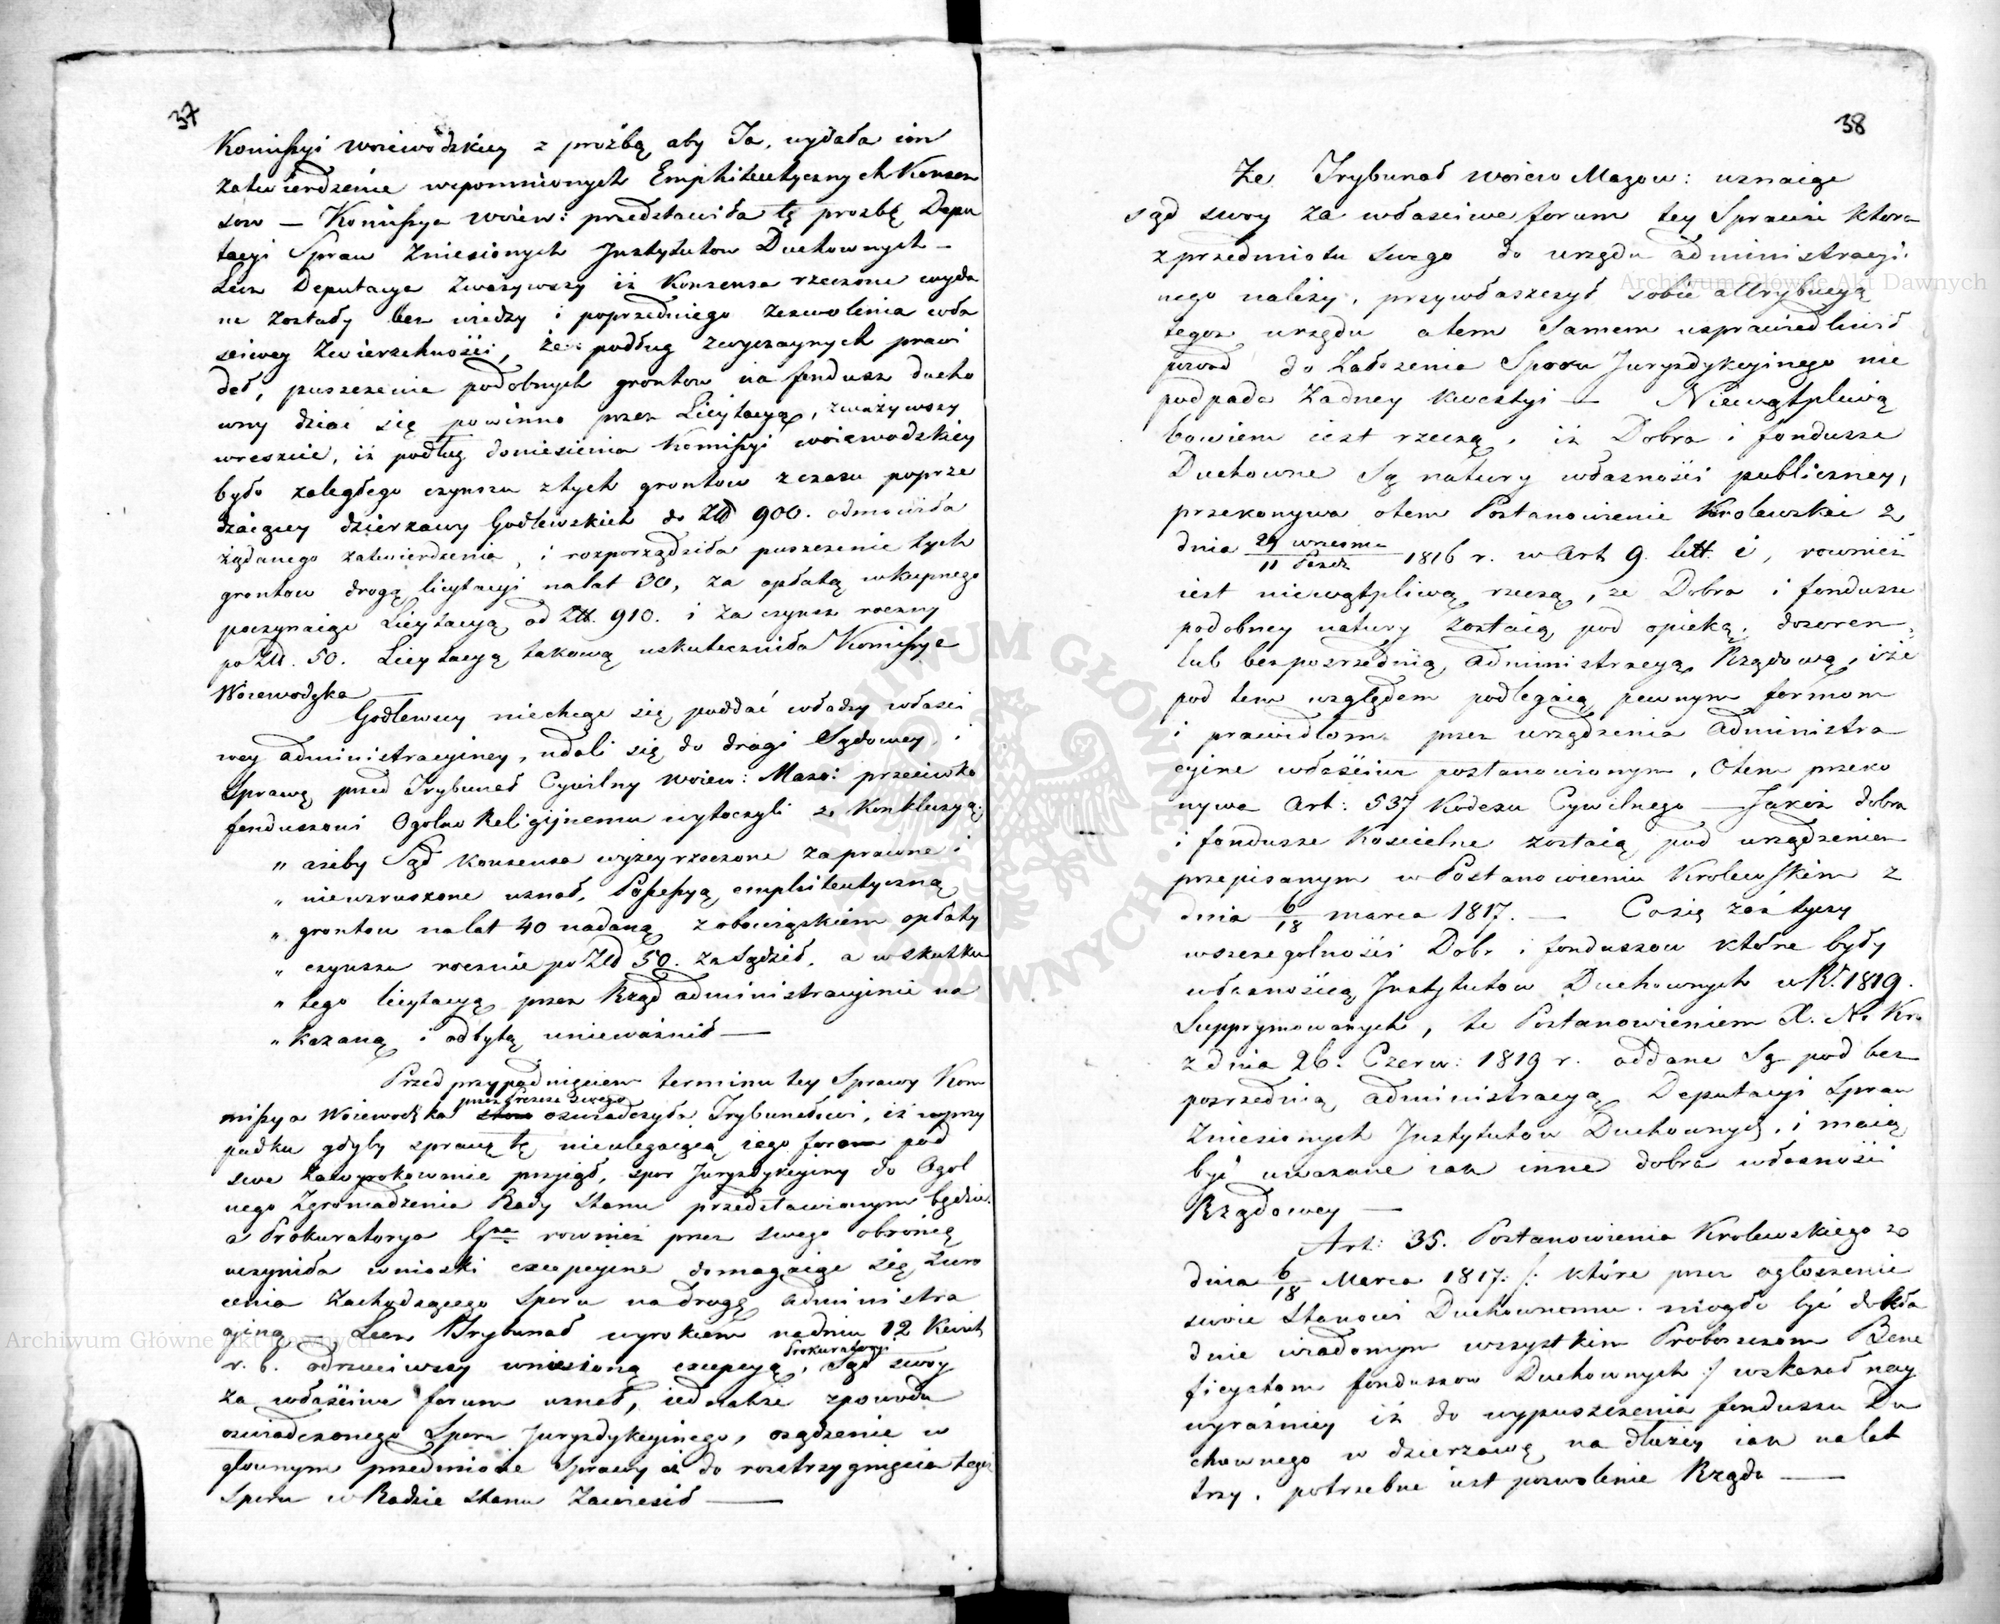 37
Komissyi Woiewodzkiey z proźbą aby Ta, wydała im
zatwierdzenie wspomnionych Emphiteutycznych Konsen
sow — Komissya Woiew: przedstawiła tę prozbę Depu
tacyi Spraw Zniesionych Jnstytutow Duchownych —
Lecz Deputacya zwazywszy iż Konsensa rzeczone wyda
ne zostały bez wiedzy i poprzedniego zezwolenia wła
sciwey Zwierzchności, że podług zwyczaynych prawi
deł, puszczenie podobnych grontow na fundusz ducho
wny dziać się powinno przez Licytacyą, zważywszy
wreszcie, iż podług doniesienia Komissyi woiewodzkiey
było zaległego czynszu z tych grontow z czasu poprze
dzaiącey dzierzawy Godlewskich do Złł 900. odmowiła
żądanego zatwierdzenia, i rozporządziła puszczenie tych
grontow drogą licytacyi na lat 30, za opłatą wkupnego
poczynaiąc Licytacyą od Złł. 910. i za czynsz roczny
po Złł. 50. Licytacyą takową uskuteczniła Komissya
Woiewodzka —
Godlewscy niechcąc się poddać władzy właści
wey administracyiney, udali się do drogi Sądowey, i
sprawę przed Trybunał Cywilny Woiew: Mazo: przeciwko
funduszowi Ogolno Religijnemu wytoczyli z Konkluzyą:
„ ażeby Sąd konsensa wyżey rzeczone za prawne i
„ niewzruszone uznał, Possessyą emphiteutyczną
„ grontow na lat 40 nadaną z obowiązkiem opłaty
„ czynszu rocznie po Złł 50. zasądził, a w skutku
„ tego licytacyą przez Rząd administracyinie na
„ kazaną i odbytą unieważnił —
Przed przypadnięciem terminu tey Sprawy Kom
przez Prezesa Swego
missya Woiewodzka oswiadczyła Trybunałowi, iż w przy
padku gdyby sprawę tę nieulegaiącą iego forum pod
swe zawyrokowanie przyiął, spor Jurysdykcyiny do Ogol
nego Zgromadzenia Rady Stanu przedstawionym będzie.
a Prokuratorya Gna rownież przez swego obrońcę
uczyniła wnioski excepcyine domagaiąc się zwro
cenia zachodzącego Sporu na drogę administra
cyiną — Lecz Trybunał wyrokiem na dniu 12 Kwiet
Prokuratoryi
r. b. odrzuciwszy wniesioną excepcyą, Sąd swoy
za właściwe forum uznał, iednakże z powodu
oswiadczonego Sporu Jurysdykcyinego, osądzenie w
głownym przedmiocie Sprawy aż do rozstrzygnięcia tegoż
Sporu w Radzie Stanu Zawiesił —
38
Że Trybunał Woiew Mazow: uznaiąc
sąd swoy za właściwe forum tey Sprawie ktora
z przedmiotu swego do urzędu administracyi
nego należy, przywłaszczył sobie attrybucyą
tegoż urzędu a tem samem usprawiedliwił
powod do Założenia Sporu Jurysdykcyinego nie
podpada żadney kwestyi — Niewątpliwą
bowiem iest rzeczą, iż Dobra i fundusze
Duchowne Są natury własności publiczney,
przekonywa o tem Postanowienie Krolewskie z
dnia 29 wrzesnia / 11 Pazdz 1816 r. w Art 9. litt. i, rownież
iest niewątpliwą rzeczą, że Dobra i fundusze
podobney natury zostaią pod opieką, dozorem,
lub bezpośrzednią administracyą Rządową, i że
pod tem względem podlegaią pewnym formom
i prawidłom przez urządzenia administra
cyine właściwe postanowionym, o tem przeko
nywa Art: 537 Kodexu Cywilnego — Jakoż dobra
i fundusze Koscielne zostaią pod urządzeniem
przepisanym w Postanowieniu Krolewskim z
dnia 6/18 marca 1817. — Co się zaś tyczy
w szczegolności Dobr i funduszow które były
własnością Jnstytutow Duchownych w R. 1819.
Supprymowanych, te Postanowieniem X. N. Kr.
z dnia 26. Czerw: 1819 r. oddane Są pod bez
pozrzednią administracyą Deputacyi Spraw
Zniesionych Jnstytutow Duchownych, i maią
być uwazane iak inne dobra własności
Rządowey —
Art: 35. Postanowienia Krolewskiego z
dnia 6/18 Marca 1817. /: które przez ogłoszenie
swoie Stanowi Duchownemu mogło być dokła
dnie wiadomym wszystkim Proboszczom Bene
ficyatom funduszow Duchownych :/ wskazał nay
wyraźniey iż do wypuszczenia funduszu Du
chownego w dzierzawę na dłużey iak na lat
trzy, potrzebne iest pozwolenie Rządu —
Archiwum Główne Akt Dawnych
Archiwum Główne Akt Dawnych
ARCHIWUM GŁÓWNE AKT DAWNYCH